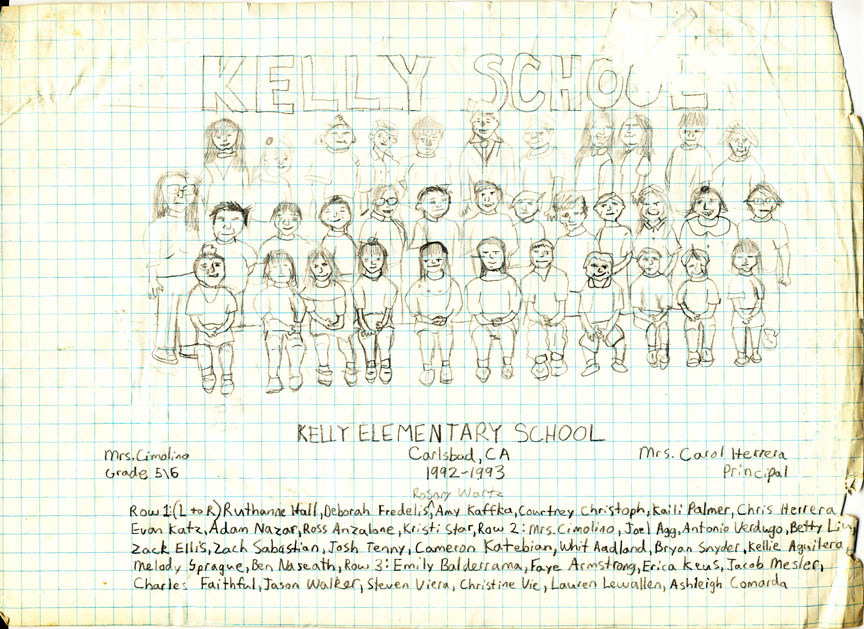 KELLY SCHOOL
KELLY ELEMENTARY SCHOOL
Mrs. Cimolino Carlsbad, CA Mrs. Carol Herrera
Grade 5\6 1992-1993 Principal
Rosary Wartz
Row 1:(L to R) Ruthanne Hall, Deborah Fredelis, Amy Kaffka, Courtney Christoph, Kaili Palmer, Chris Herrera
Evan Katz, Adam Nazar, Ross Anzalone, Kristi Star, Row 2: Mrs. Cimolino, Joel Agg, Antonio Verdugo, Betty Liu
Zack Ellis, Zach Sabastian, Josh Tenny, Cameron Katebian, Whit Aadland, Bryan Snyder, Kellie Aguilera
Melody Sprague, Ben Naseath, Row 3: Emily Balderrama, Faye Armstrong, Erica Keus, Jacob Mesler,
Charles Faithful, Jason Walker, Steven Viera, Christine Vie, Lauren Lewallen, Ashleigh Comarda